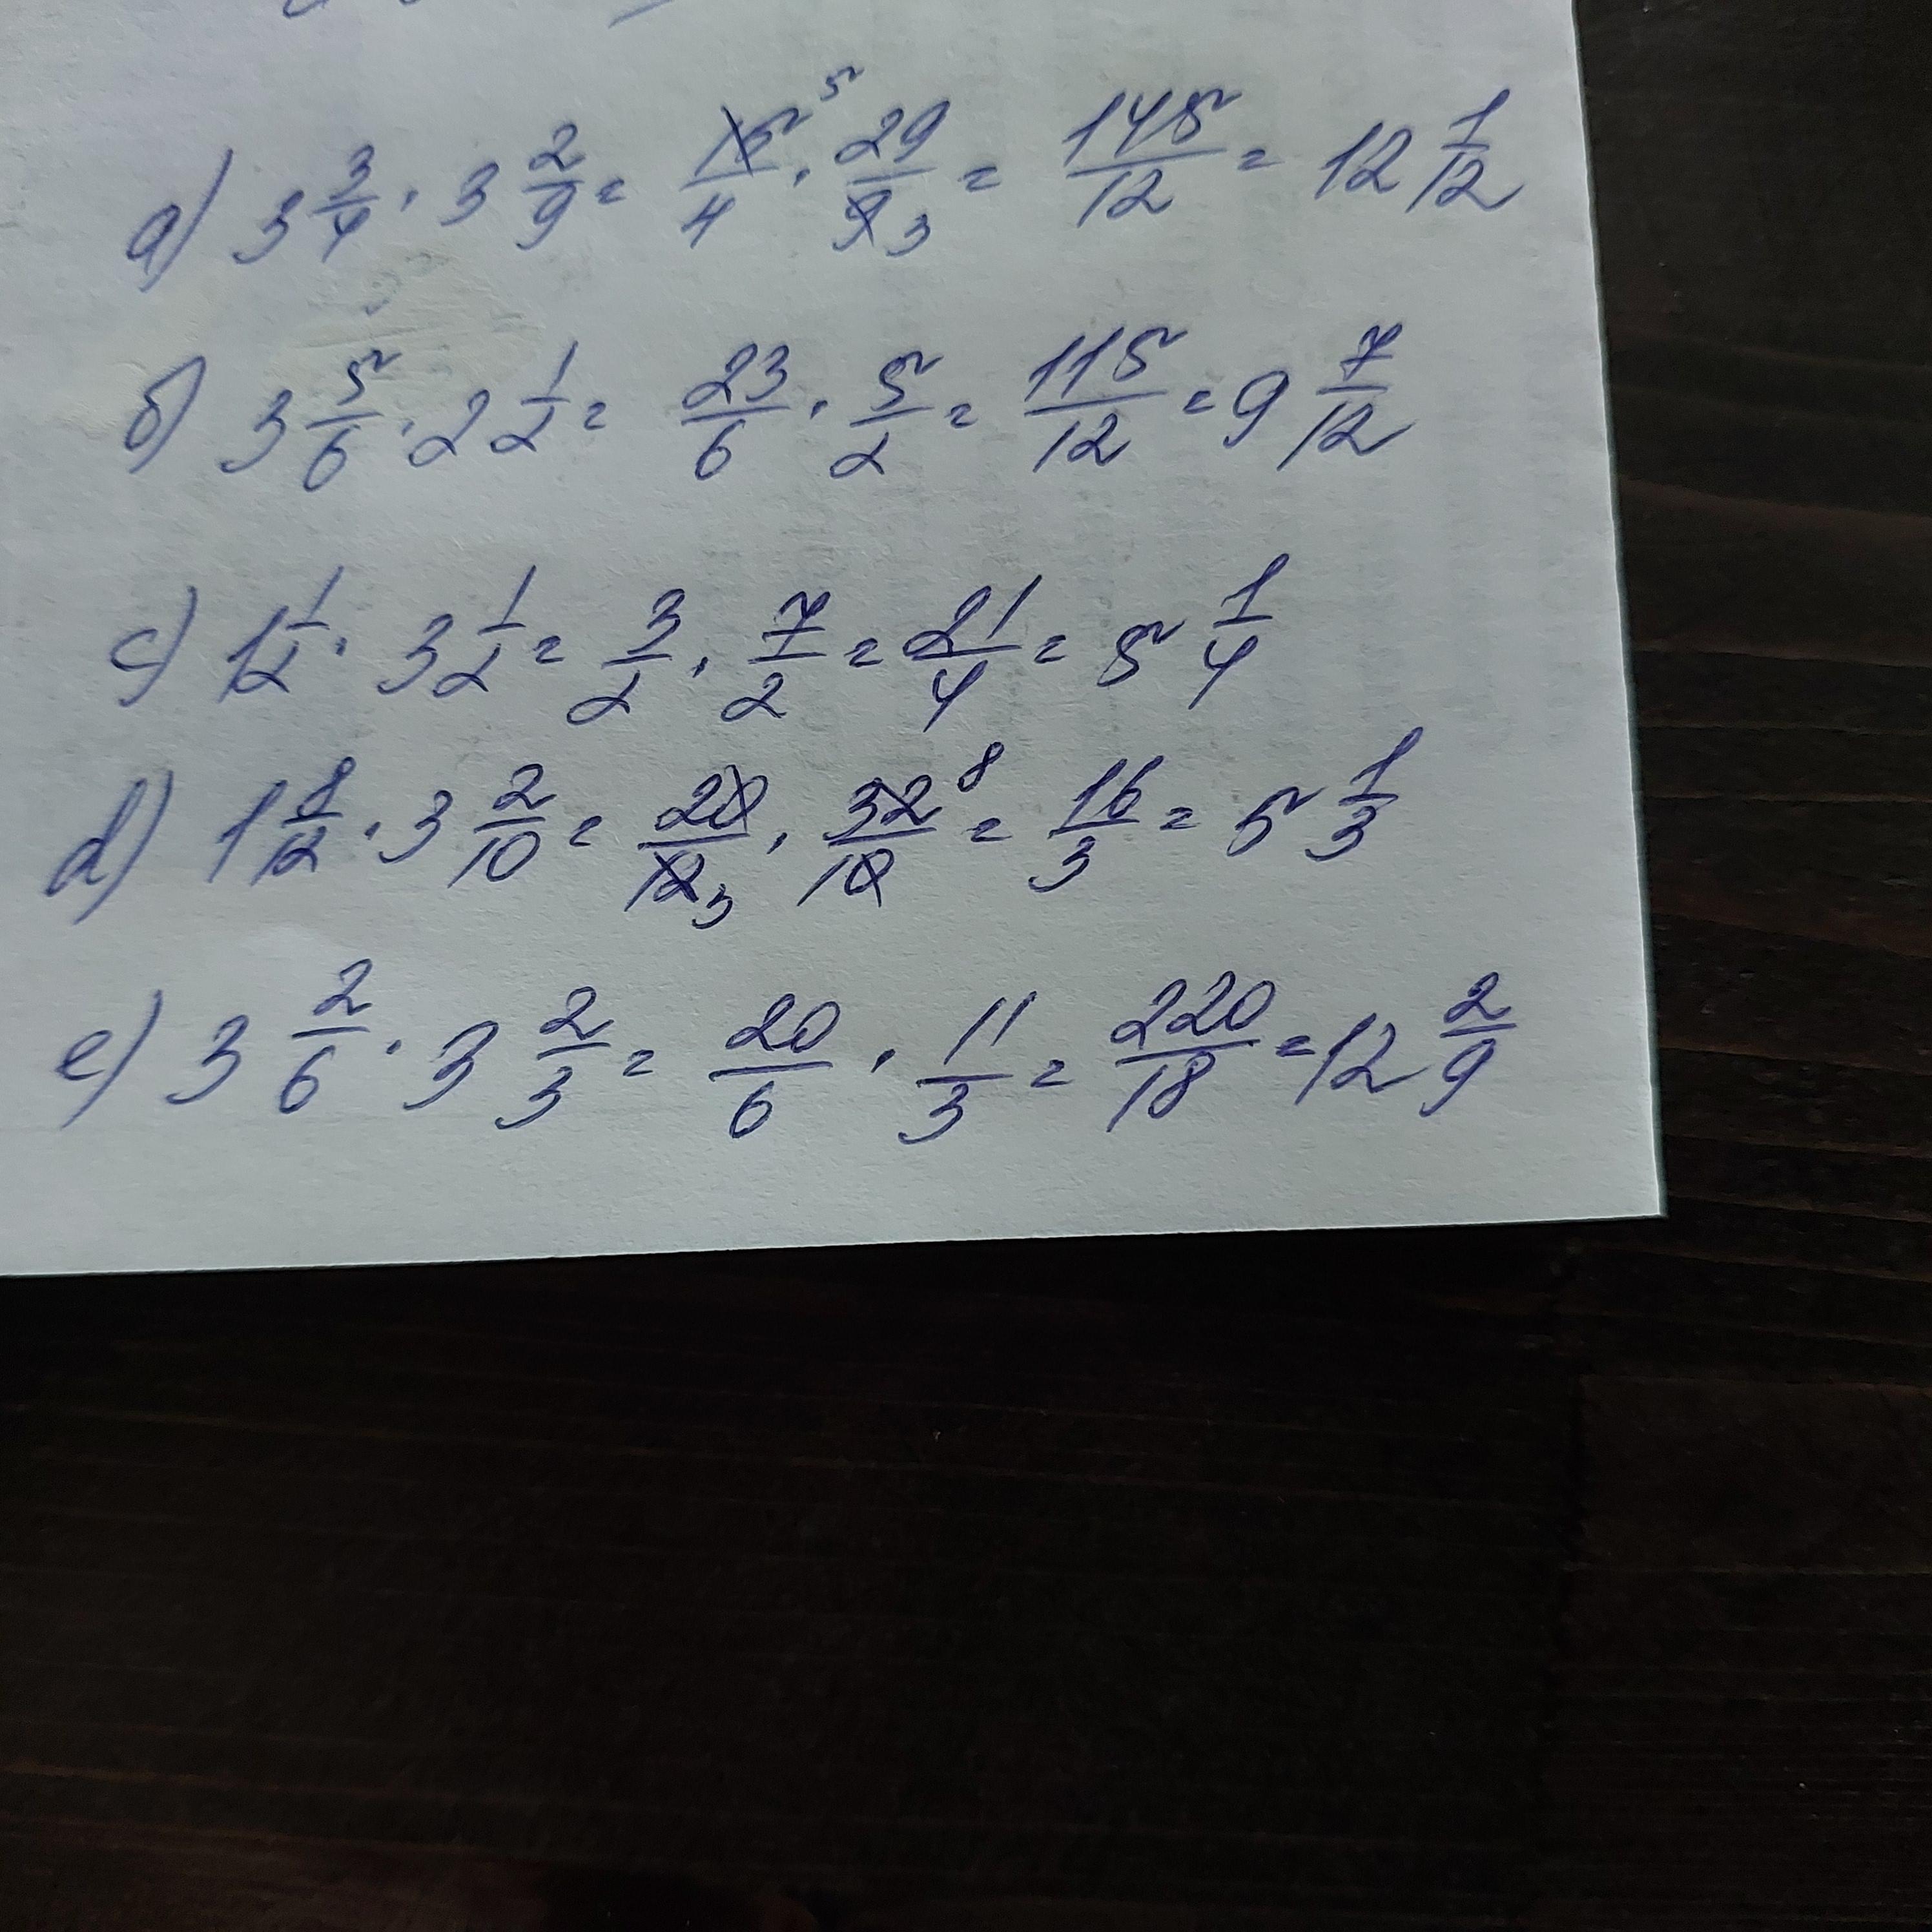 a) 3 3/4 · 3 2/9 = 15/4 5 · 29/9 3 = 145/12 = 12 1/12
б) 3 5/6 · 2 1/2 = 23/6 · 5/2 = 115/12 = 9 7/12
c) 1 1/2 · 3 1/2 = 3/2 · 7/2 = 21/4 = 5 1/4
d) 1 8/12 · 3 2/10 = 20/12 3 · 32/10 8 = 16/3 = 5 1/3
e) 3 2/6 · 3 2/3 = 20/6 · 11/3 = 220/18 = 12 2/9